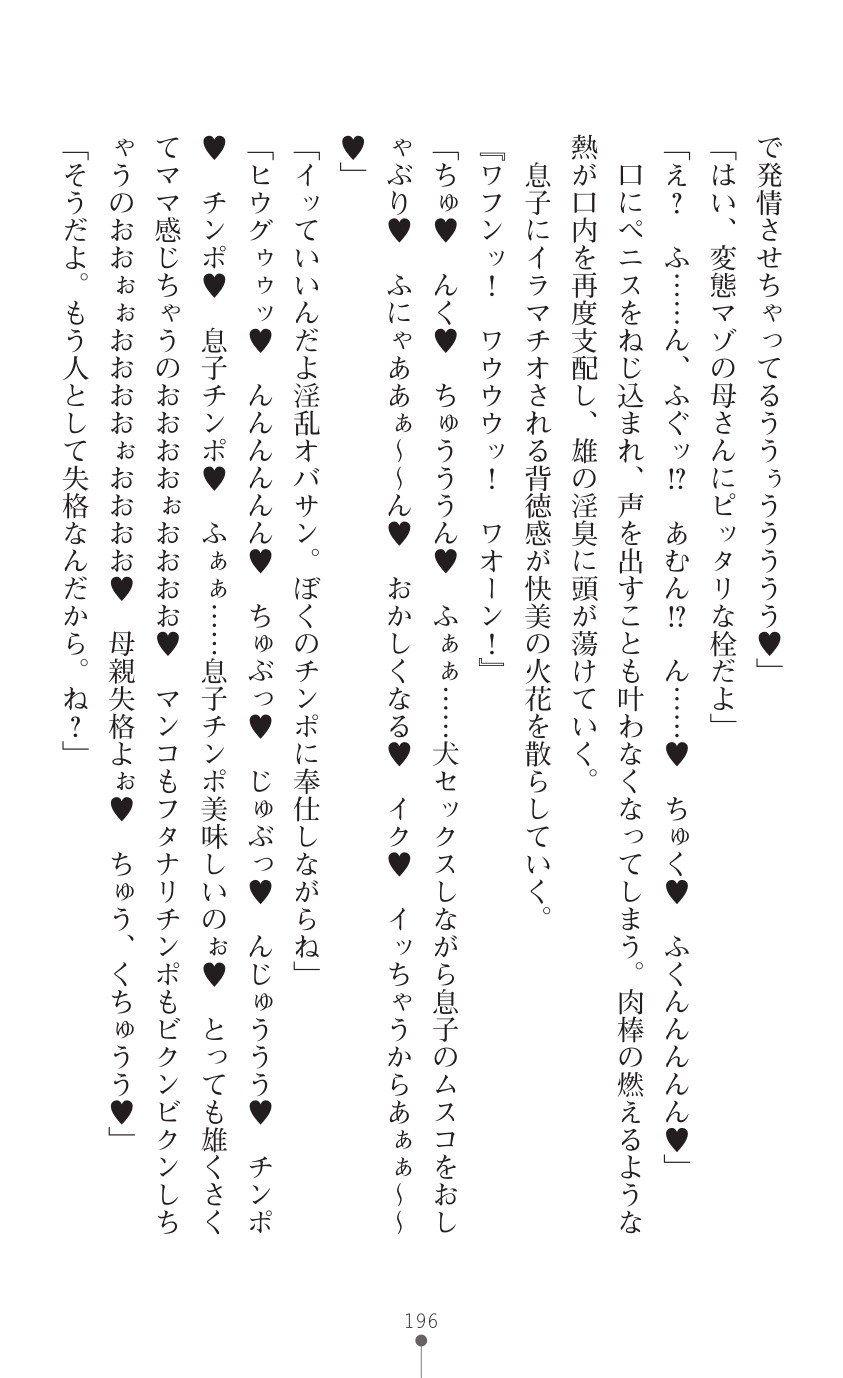 で発情させちゃってるううぅううううう♥」
「はい、変態マゾの母さんにピッタリな栓だよ」
「え？　ふ……ん、ふぐッ!?　あむん!?　ん……♥　ちゅく♥　ふくんんんんん♥」
　口にペニスをねじ込まれ、声を出すことも叶わなくなってしまう。肉棒の燃えるような
熱が口内を再度支配し、雄の淫臭に頭が蕩けていく。
　息子にイラマチオされる背徳感が快美の火花を散らしていく。
『ワフンッ！　ワウウウッ！　ワオーン！』
「ちゅ♥　んく♥　ちゅううぅん♥　ふぁぁ……犬セックスしながら息子のムスコをおし
ゃぶり♥　ふにゃああぁ～～ん♥　おかしくなる♥　イク♥　イッちゃうからあぁぁ～～
♥」
「イッていいんだよ淫乱オバサン。ぼくのチンポに奉仕しながらね」
「ヒウグゥゥッ♥　んんんんんん♥　ちゅぶっ♥　じゅぶっ♥　んじゅううう♥　チンポ
♥　チンポ♥　息子チンポ♥　ふぁぁ……息子チンポ美味しいのぉ♥　とっても雄くさく
てママ感じちゃうのおおおおぉおおおお♥　マンコもフタナリチンポもビクンビクンしち
ゃうのおおぉぉおおおおぉおおおお♥　母親失格よぉ♥　ちゅう、くちゅうう♥」
「そうだよ。もう人として失格なんだから。ね？」
196